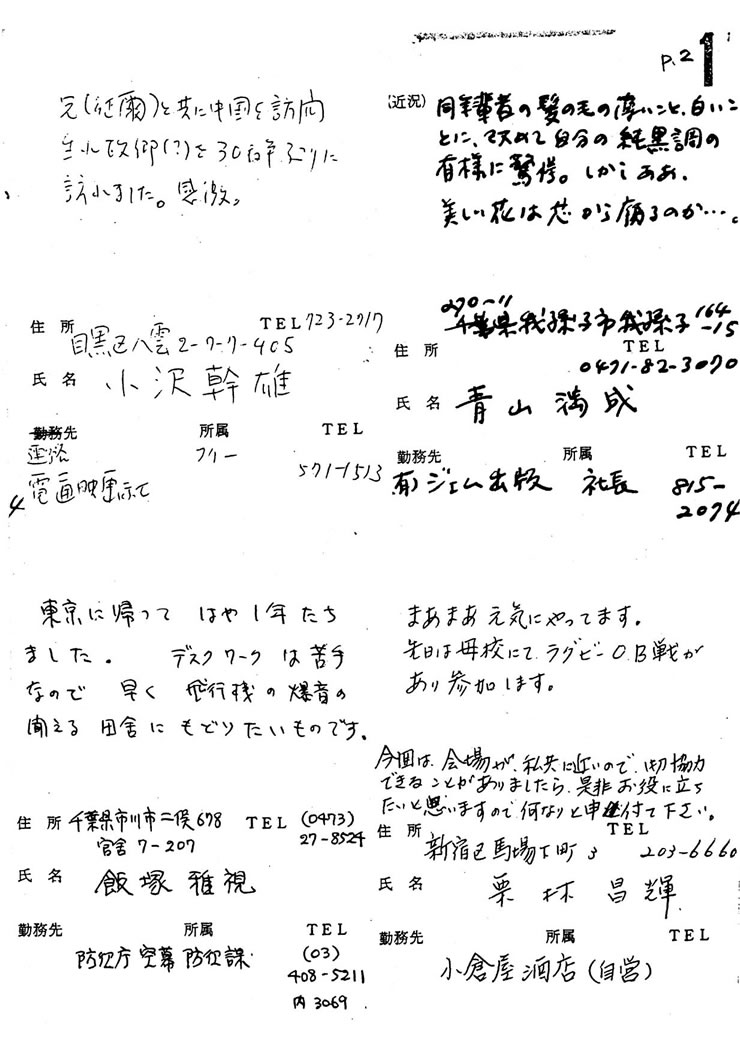 P.2 1
兄(征爾)と共に中国を訪問
生れ故郷(?)を30数年ぶりに
訪れました。感激。
住所 TEL 723-2717
目黒区八雲2-7-7-405
氏名 小沢幹雄
勤務先 所属 TEL
連絡 フリー
571-1513
電通映画社
4
(近況) 同年輩者の髪の毛の薄いこと、白いこ
とに、改めて自分の純黒調の
有様に驚愕。しかしああ、
美しい花は芯から腐るのか…。
270-11
千葉県我孫子市我孫子164-15
住所 TEL
0471-82-3070
氏名 青山満成
勤務先 所属 TEL
(有)ジェム出版 社長 815-
2074
東京に帰って はや1年たち
ました。 デスクワークは苦手
なので 早く 飛行機の爆音の
聞える 田舎にもどりたいものです。
住所 千葉県市川市二俣678 TEL (0473)
官舎7-207 27-8524
氏名 飯塚雅視
勤務先 所属 TEL
防衛庁空幕防衛課 (03)
408-5211
内3069
まあまあ元気にやってます。
先日は母校にてラグビーO.B戦が
あり参加します。
今回は、会場が、私共に近いので、切協力
できることがありましたら、是非お役に立ち
たいと思いますので、何なりと申し付て下さい。
住所 TEL
新宿区馬場下町3 203-6660
氏名 栗林昌輝
勤務先 所属 TEL
小倉屋酒店(自営)